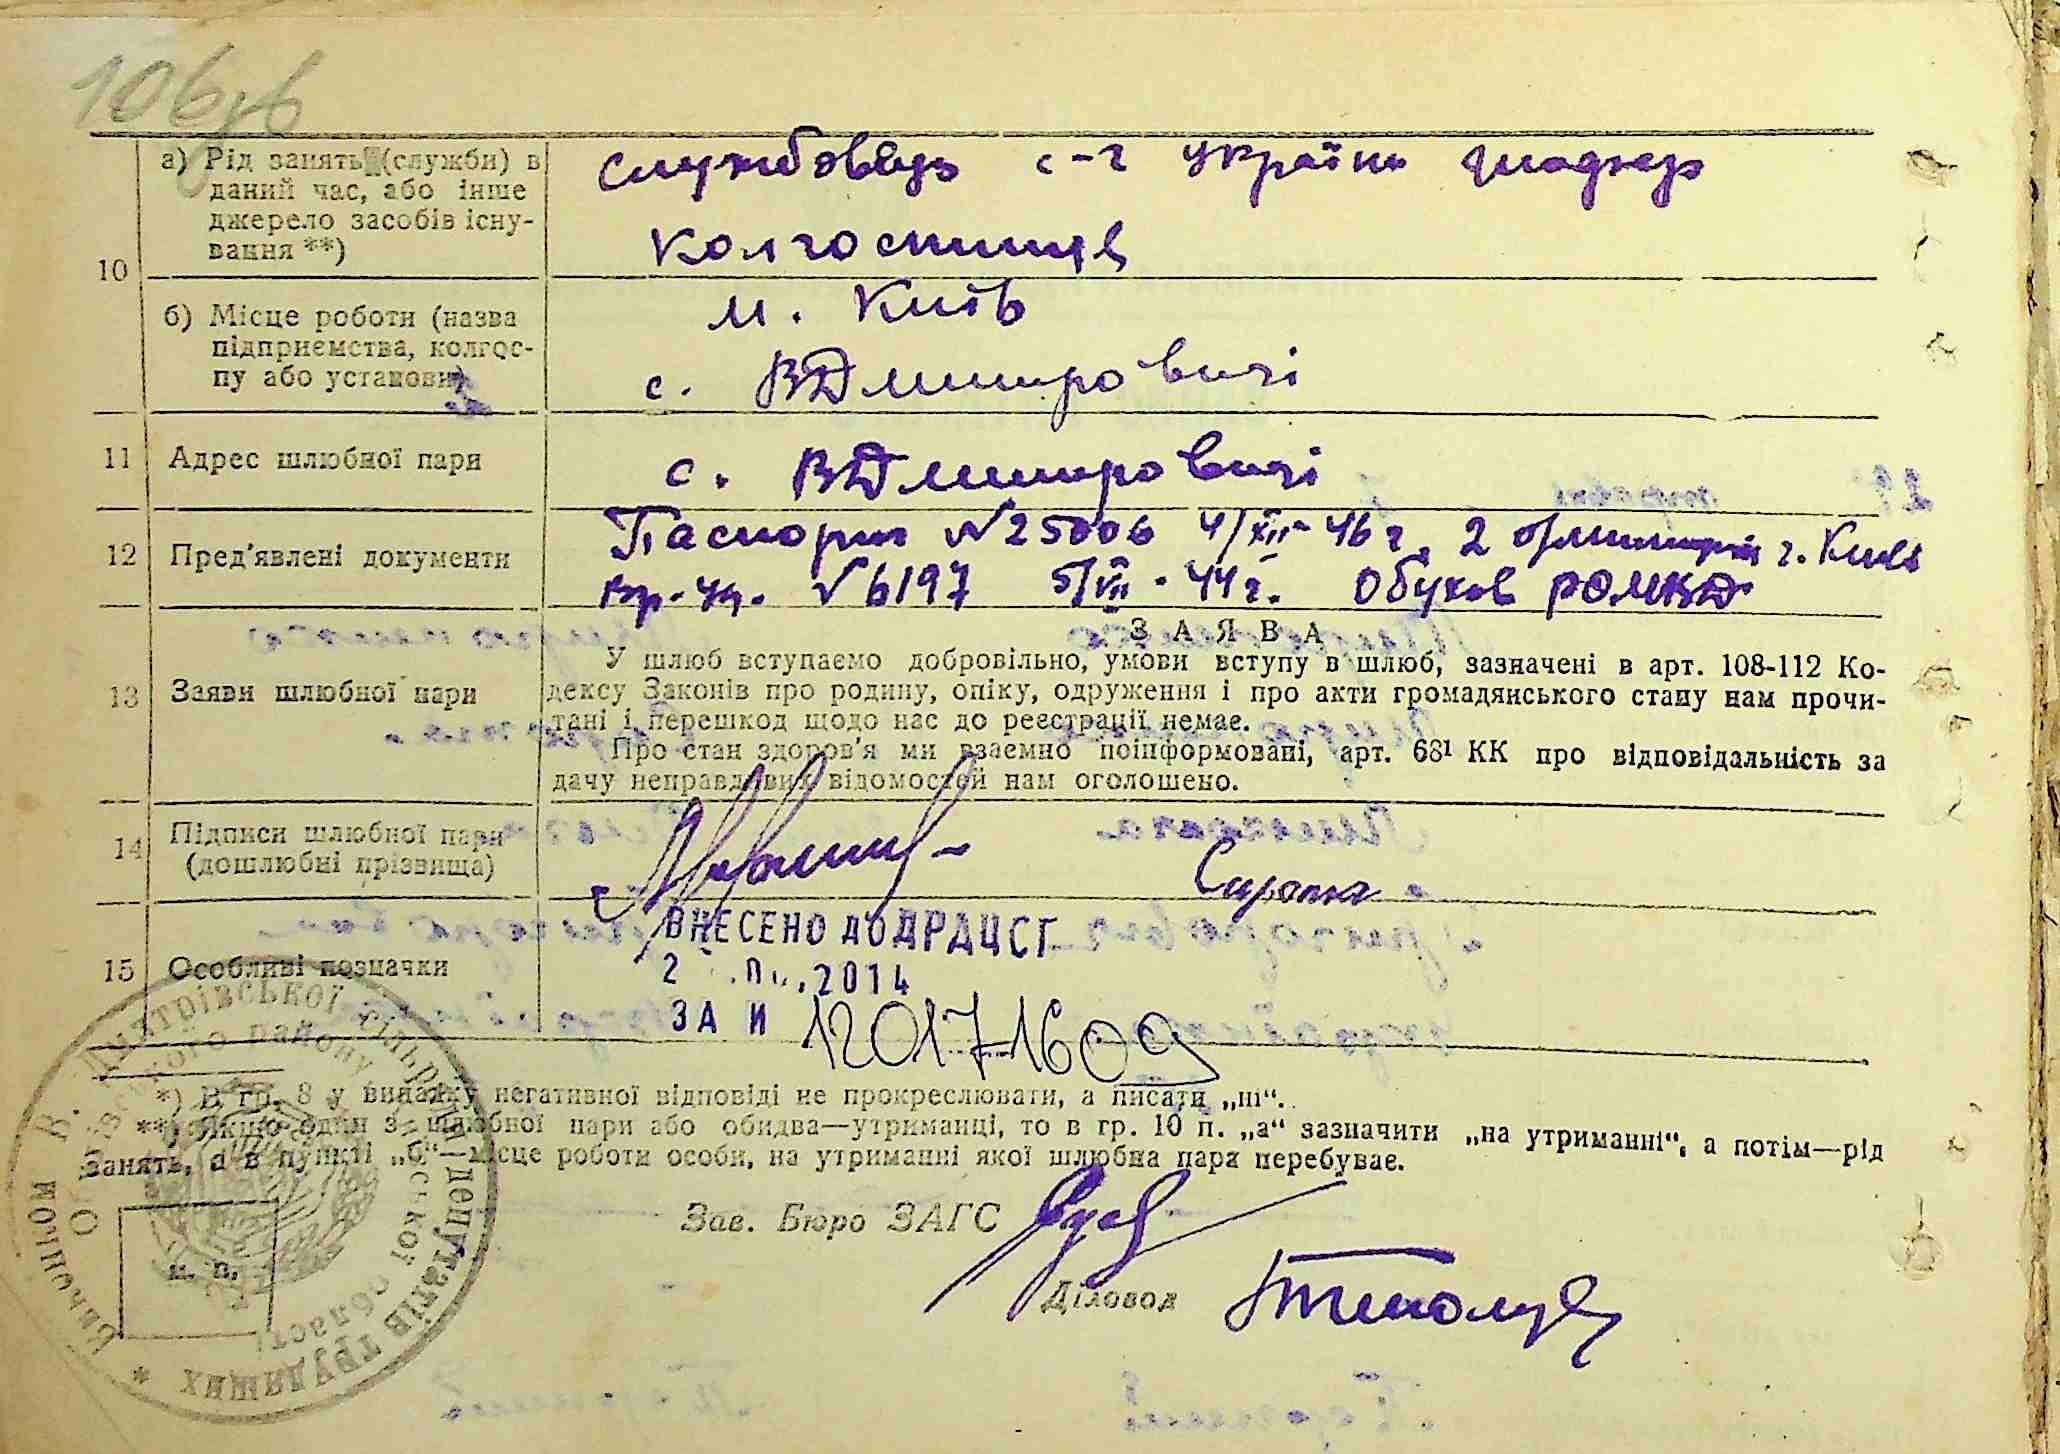 а) Рід занять (служби) в
даний час, або інше
джерело засобів існу-
вання **)
службовець с-г україни
колгоспниця
10
б) Місце роботи (назва
підприємства, колгос-
пу або установи)
м. Київ
с. ВДмитровичі
11 Адрес шлюбної пари
с. ВДмитровичі
12 Пред'явлені документи
Паспорт №25006 4/XII-46 г. 2 от милиции г. Киев
№6197 5/VII-44г. Обухов РОМВД
ЗАЯВА
13 Заяви шлюбної пари
У шлюб вступаємо добровільно, умови вступу в шлюб, зазначені в арт. 108-112 Ко-
дексу Законів про родину, опіку, одруження і про акти громадянського стану нам прочи-
тані і перешкод щодо нас до реєстрації немає.
Про стан здоров'я ми взаємно поінформовані, арт. 68¹ КК про відповідальність за
дачу неправдивих відомостей нам оголошено.
14 Підписи шлюбної пари
(дошлюбні прізвища)
Сирота
15 Особливі позначки
ВНЕСЕНО ДО ДРАЦСГ
2014
ЗА И 12017-1609
*) В гр. 8 у випадку негативної відповіді не прокреслювати, а писати „ні“.
**) Якщо один з шлюбної пари або обидва—утриманці, то в гр. 10 п. „а“ зазначити „на утриманні“, а потім—рід
занять, а в пункті „б“—місце роботи особи, на утриманні якої шлюбна пара перебуває.
Зав. Бюро ЗАГС
Діловод
м. п.
Виконком В. Дмитрівської сільради депутатів трудящих
Обухівського району Київської області